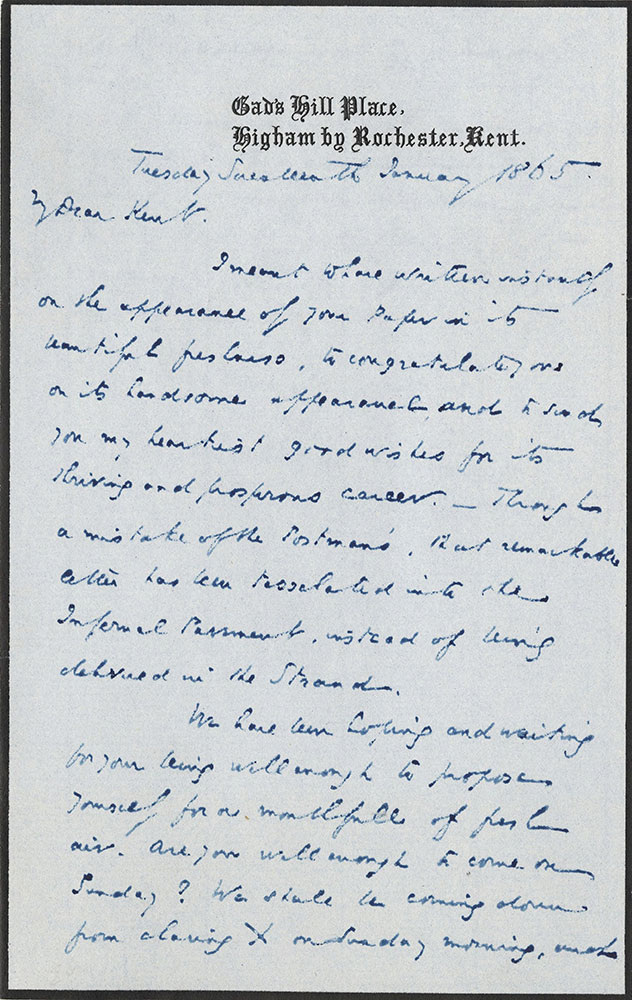 Gad's Hill Place,
Higham by Rochester, Kent.
Tuesday Seventeenth January 1865.
My Dear Kent.
I meant to have written instantly
on the appearance of your Paper in its
beautiful freshness, to congratulate you
on its handsome appearance, and to send
you my heartiest good wishes for its
thriving and prosperous career. — Through
a mistake of the Postman's, that remarkable
letter has been tesselated into the
Infernal Pavement, instead of being
delivered in the Strand.
We have been hoping and waiting
for your being well enough to propose
yourself for a mouthfull of fresh
air. Are you well enough to come on
Sunday? We shall be coming down
from Charing X on Sunday morning, and